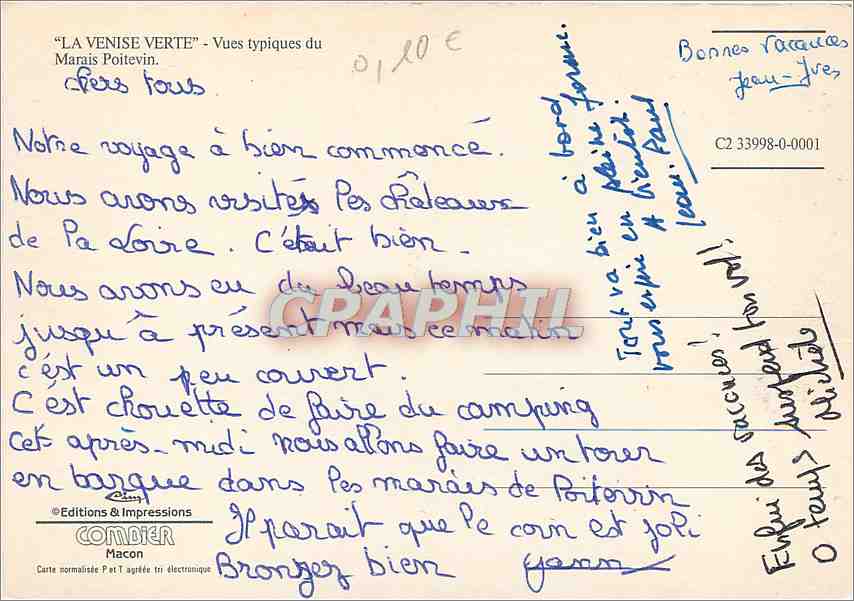 "LA VENISE VERTE" - Vues typiques du
Marais Poitevin.
0,10 €
Chers tous
Notre voyage à bien commencé.
Nous avons visités les châteaux
de la Loire. C'était bien.
Nous avons eu du beau temps
jusqu'à présent mais ce matin
c'est un peu couvert.
C'est chouette de faire du camping
Cet après-midi nous allons faire un tour
en barque dans les marais de Poitevin
Il parait que le coin est joli
Bronzez bien Yann
©Editions & Impressions
COMBIER
Macon
Carte normalisée P et T agréée tri électronique
Tout va bien à bord
vous en pleine forme.
A bientôt.
Jean-Paul
Bonnes vacances
Jean-Yves
C2 33998-0-0001
Enfin des vacances!
O temps suspend ton vol!
Michèle
CPAPHIL